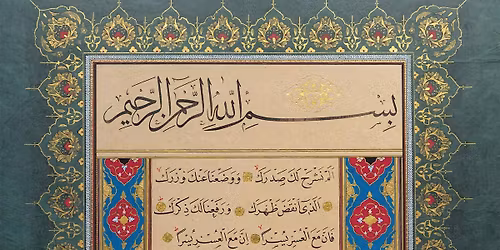 بِسْمِ اللهِ الرَّحْمٰنِ الرَّحِيمِ
اَلَمْ نَشْرَحْ لَكَ صَدْرَكَ وَوَضَعْنَا عَنْكَ وِزْرَكَ
اَلَّذِى اَنْقَضَ ظَهْرَكَ وَرَفَعْنَا لَكَ ذِكْرَكَ
فَاِنَّ مَعَ الْعُسْرِ يُسْرًا اِنَّ مَعَ الْعُسْرِ يُسْرًا